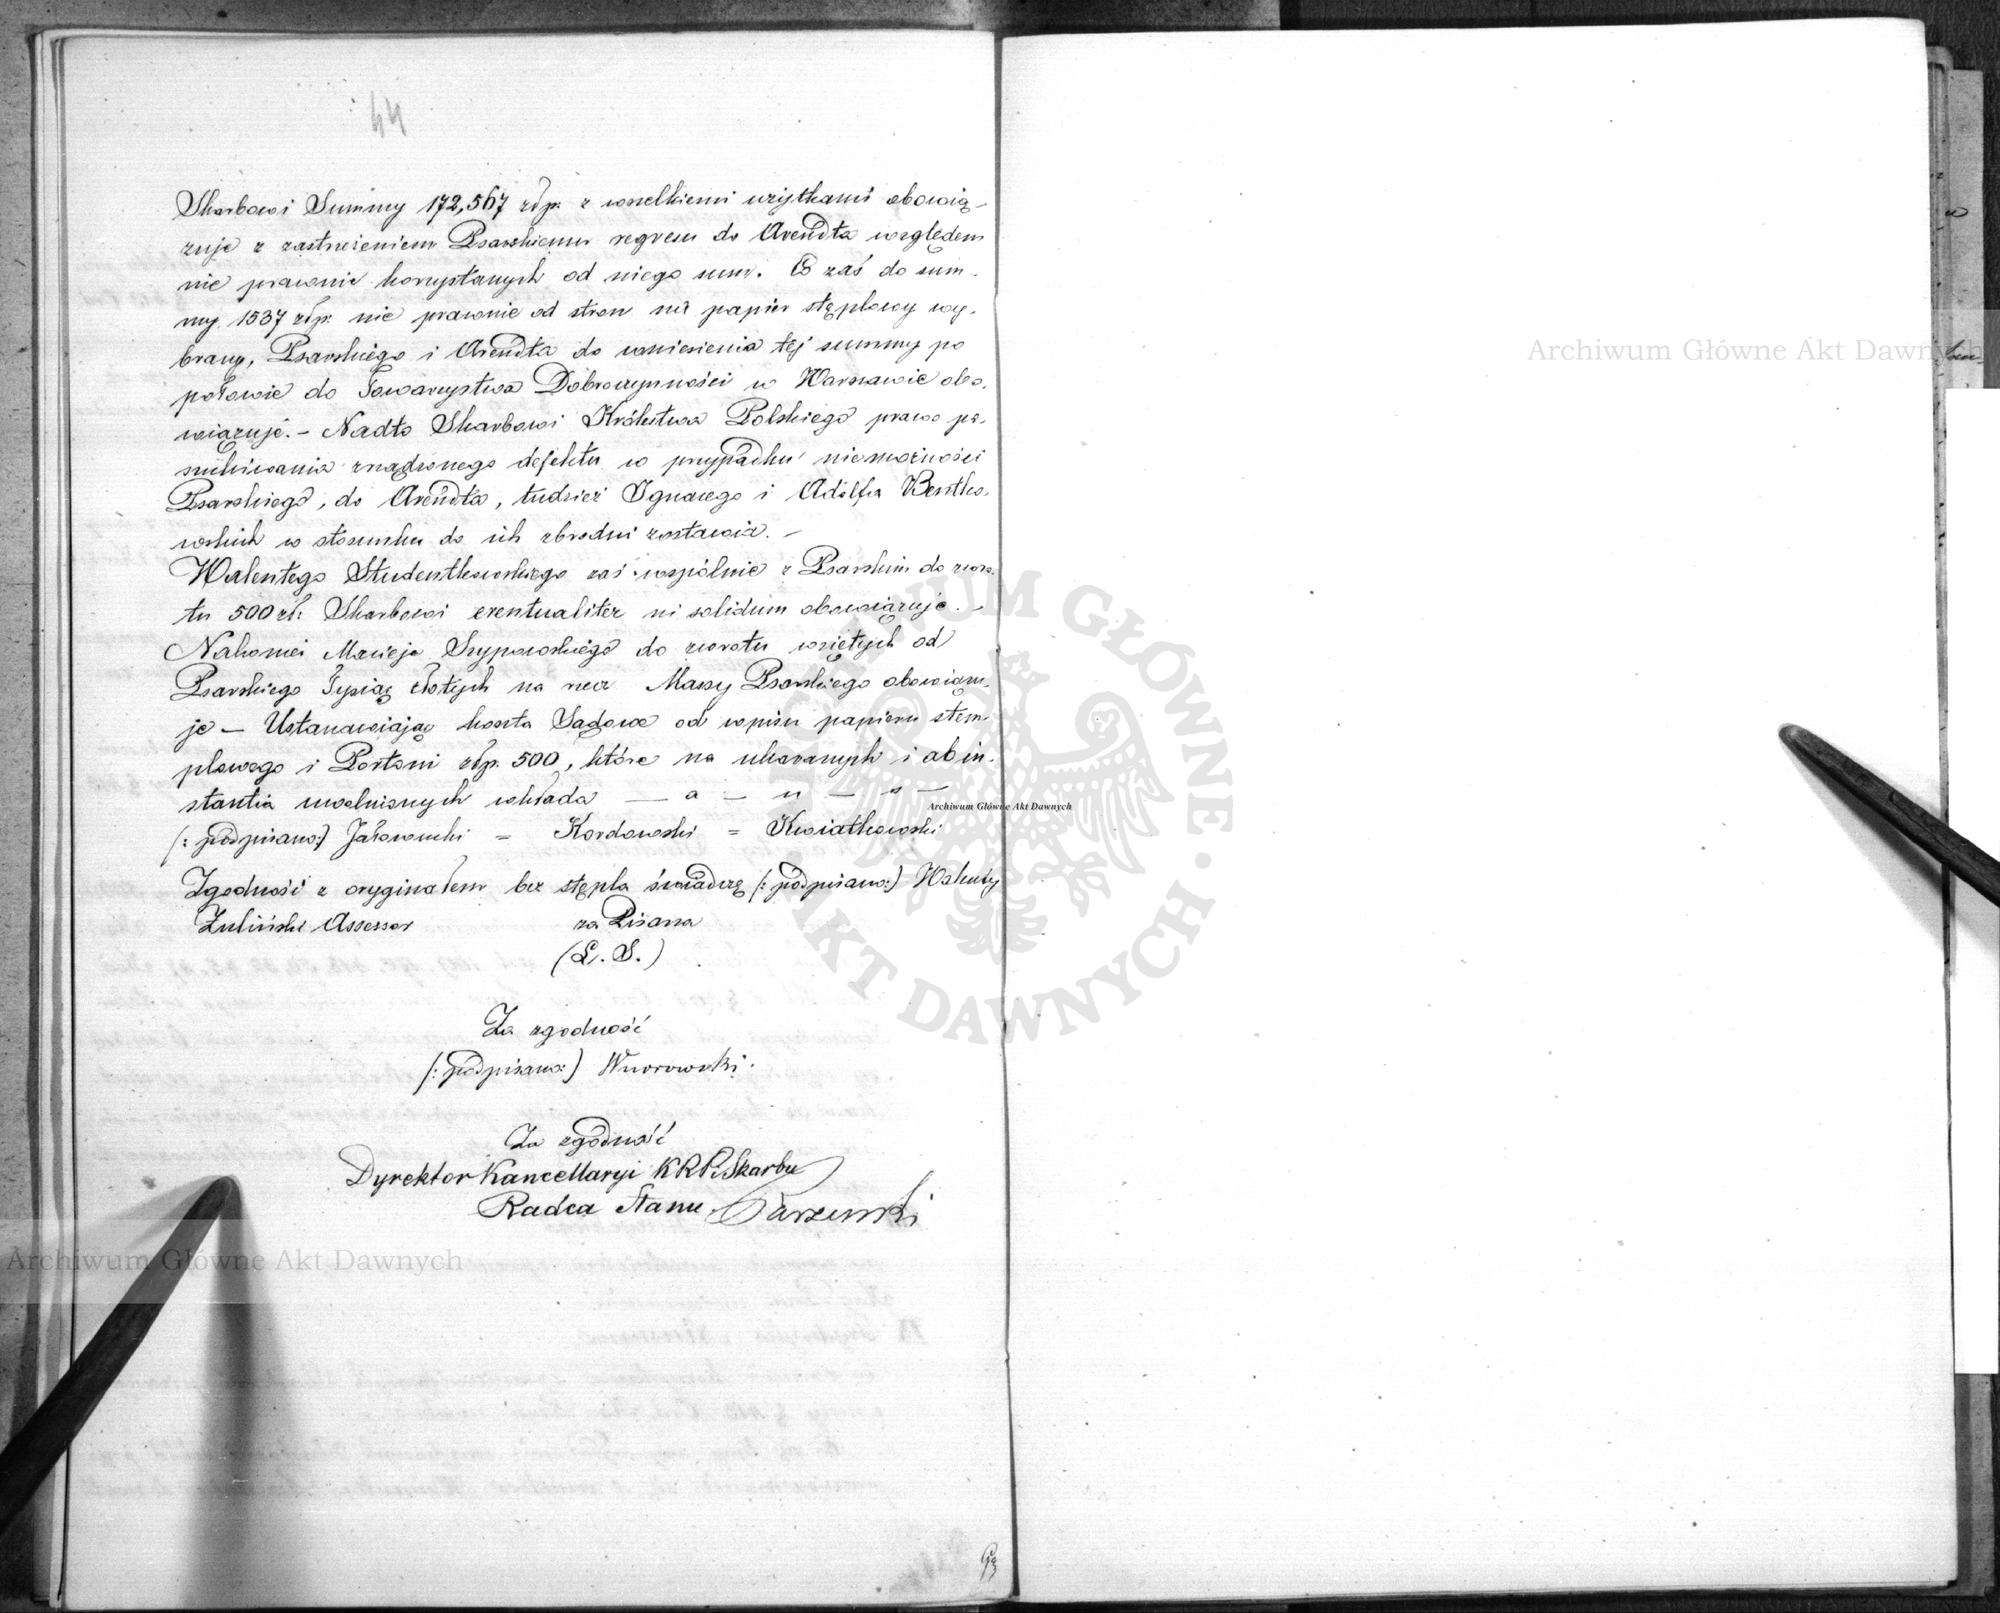 44
Skarbowi Summy 172,567 złp. z wszelkiemi użytkami obowią-
zuje z zastrzeżeniem Psarskiemu regresu do Arendta względem
nie prawnie korzystanych od niego sum. Co zaś do sum-
my 1537 złp. nie prawnie od stron na papier stęplowy wy-
brany, Psarskiego i Arendta do wniesienia tej summy po
połowie do Towarzystwa Dobroczynności w Warszawie obo-
wiązuje. – Nadto Skarbowi Królestwa Polskiego prawo po-
szukiwania rządzonego defektu w przypadku niemożności
Psarskiego, do Arendta, tudzież Ignacego i Adolfa Bentko-
wskich w stosunku do ich zbrodni zostawia. –
Walentego Studentkowskiego zaś wspólnie z Psarskim do zwro-
tu 500 zł: Skarbowi eventualiter in solidum obowiązuje. –
Nakoniec Macieja Szypowskiego do zwrotu wziętych od
Psarskiego Tysiąc złotych na rzecz Massy Psarskiego obowiązu-
je – Ustanawiając koszta Sądowe od wpisu papieru stem-
plowego i Portorii złp. 500, które na ukaranych i ab in-
stantia uwolnionych wkłada — a — u — s —
(: podpisano:) Jakowicki = Kordowski = Kwiatkowski
Zgodność z oryginałem bez stępla świadczę (: podpisano:) Walenty
Zuliński Assessor za Pisarza
(L. S.)
Za zgodność
(: podpisano:) Wnorowski.
Za zgodność
Dyrektor Kancellaryi KRP. i Skarbu
Radca Stanu
Archiwum Główne Akt Dawnych
Archiwum Główne Akt Dawnych
Archiwum Główne Akt Dawnych
ARCHIWUM GŁÓWNE AKT DAWNYCH